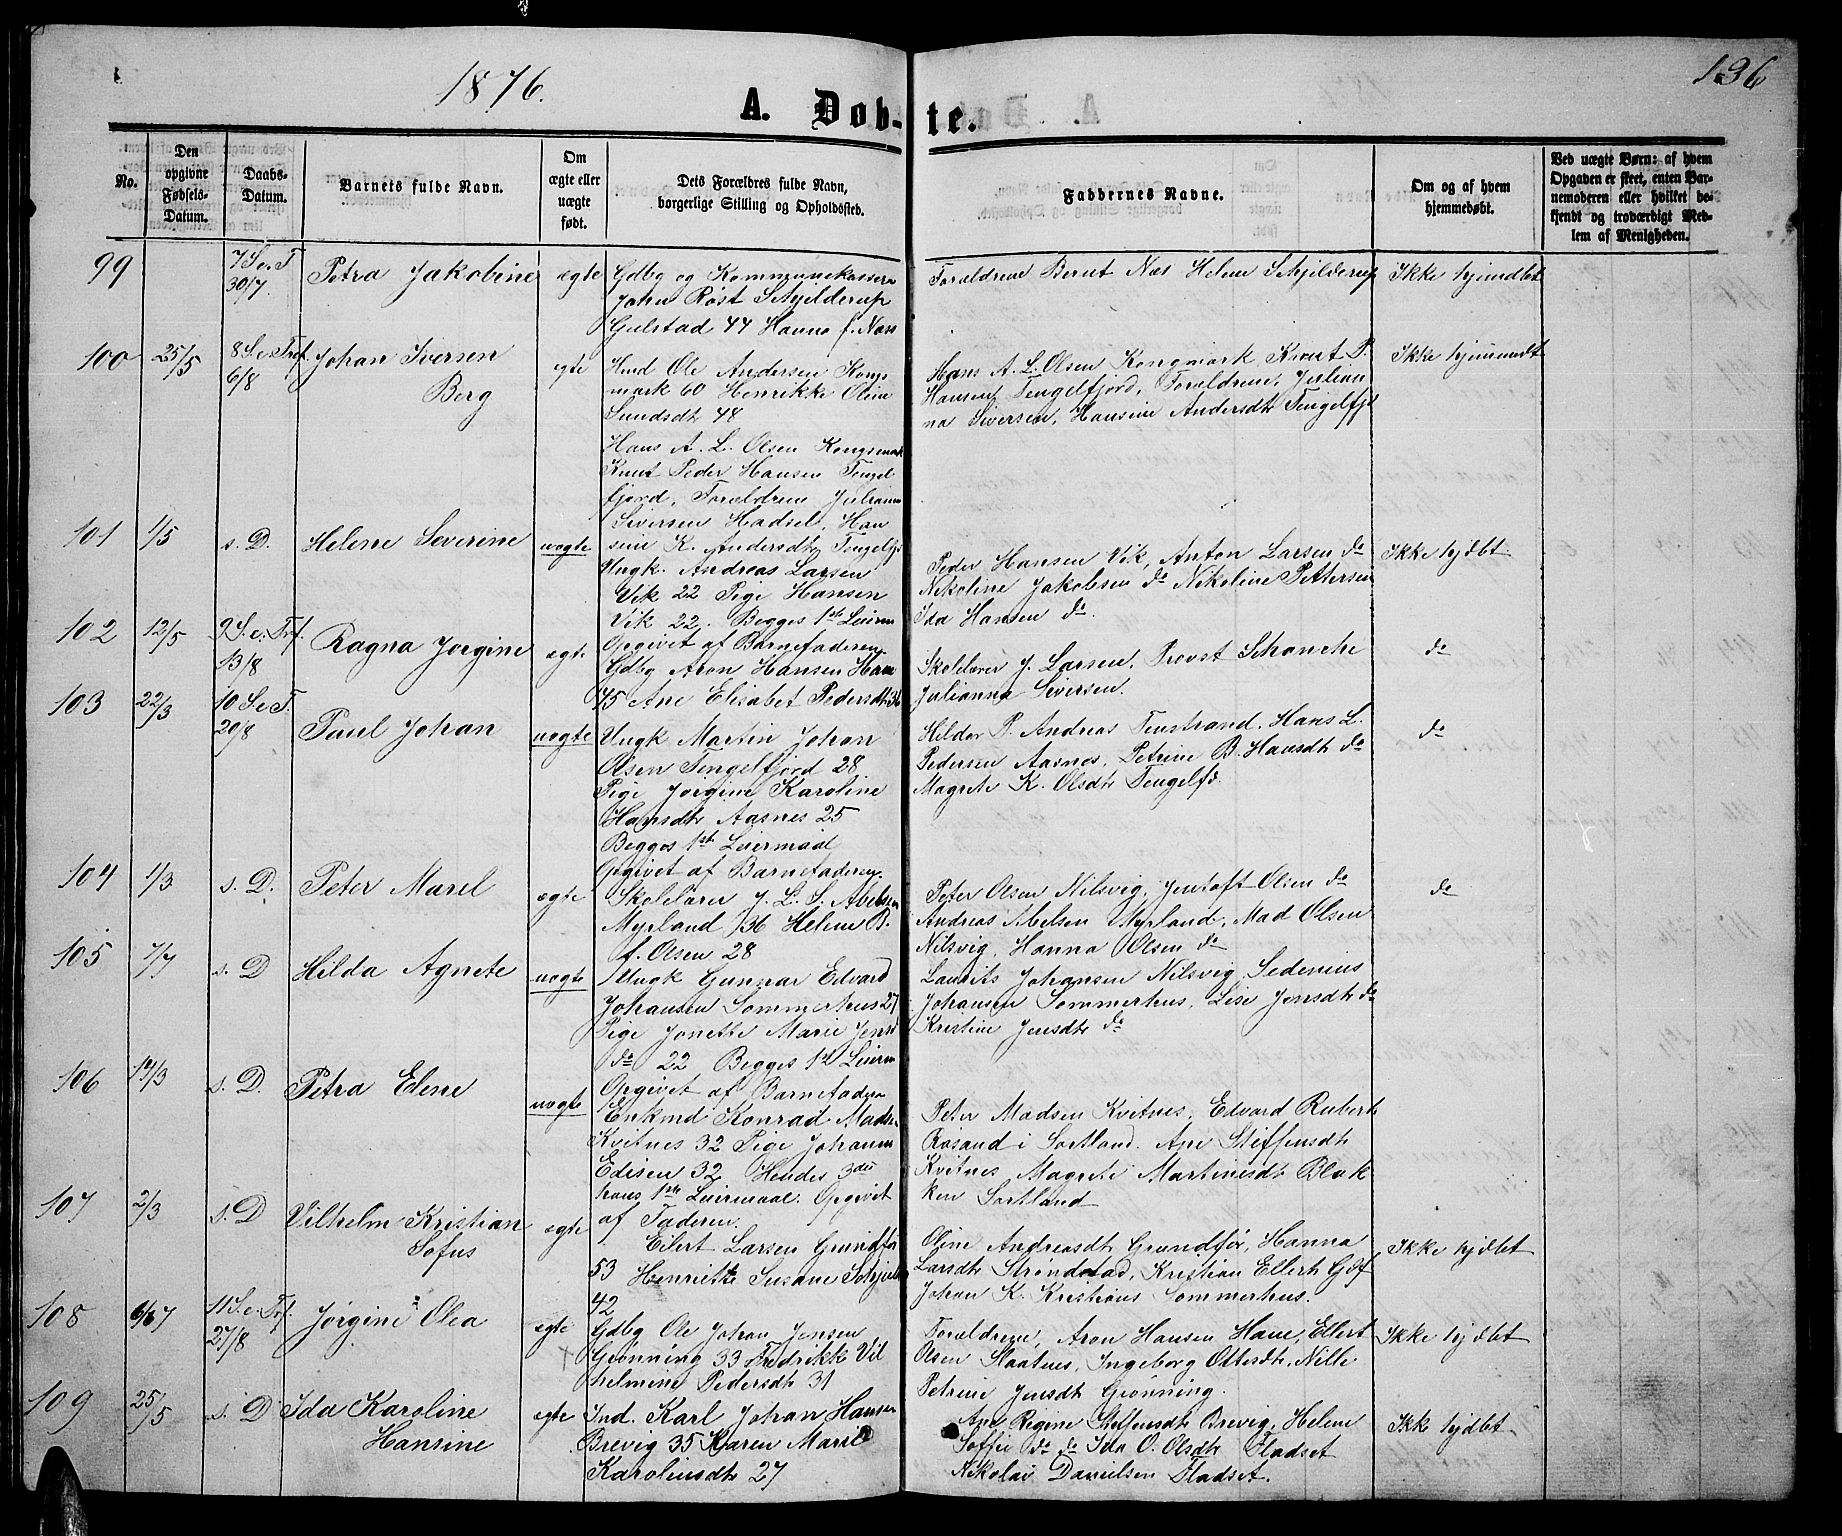 1876.
136
A. Døb-te.
No.
Den opgivne Fødsels-Datum.
Daabs-Datum.
Barnets fulde Navn.
Om ægte eller uægte født.
Dets Forældres fulde Navn, borgerlige Stilling og Opholdssted.
Faddernes Navne.
Om og af hvem hjemmedøbt.
Ved uægte Børn: af hvem Opgaven er skeet, enten Barnemoderen eller hvilket bekjendt og troværdigt Medlem af Menigheden.
99
7 S.e.T. 30/7.
Petra Jakobine
ægte
Gdbg og Kommunekasserer
John Røst Schjelderup
Gulstad 44 Hanna f. Næss
Forældrene Bernt Næs Helene Schjelderup
Ikke hjmdbt
100
25/5
8 S.e.Tref. 6/8
Johan Iversen
Berg
ægte
Husd Ole Andersen Kongs
mark 60 Henrikke Oline
Sundsdt 48
Hans A. L. Olsen Kongsmark
Knut Peder Hansen Tengel
fjord, Forældrene Julianna
Siversen Hadsel, Han
sine K. Andersdtr Tengelfj
Hans A. L. Olsen Kongmark, Knut P.
Hansen Tengelfjord, Forældrene, Julian
na Siversen, Hansine Andersdtr Tengelfj
Ikke hjemmedt
101
1/5
s. D.
Helene Severine
uægte
Ungk. Andreas Larsen
Vik 22 Pige Hansen
Vik 22. Begges 1ste Leierm
Opgivet af Barnefaderen.
Peder Hansen Vik, Anton Larsen do
Nikoline Jakobsen do Nikoline Pettersen
Ida Hansen do.
Ikke hjdbt.
102
12/5
9 S.e.Tref. 13/8
Ragna Jørgine
ægte
Gdbg Aron Hansen Hane
45 Ane Elisabet Pedersdtr 36
Skolelærer J. Larsen, Provst Schanche
Julianna Siversen.
do
103
22/3
10 S.e.T. 20/8
Paul Johan
uægte
Ungk Martin Johan
Olsen Tengelfjord 28
Pige Jørgine Karoline
Hansdtr Aasnes 25
Begges 1ste Leiermaal
Opgivet af Barnefaderen.
Hildor P. Andreas Finstrand. Hans L.
Pedersen Aasnes, Petrine B. Hansdtr do
Magrete K. Olsdtr Tengelfd.
do
104
1/3
s. D.
Peter Marel
ægte
Skolelærer J. L. S. Abelsen
Myrland 36 Helene B.
f. Olsen 28
Peter Olsen Nilsvig, Jentoft Olsen do
Andreas Abelsen Myrland, Mad Olsen
Nilsvig, Hanna Olsen do
do
105
7/7
s. D
Hilda Agnete
uægte
Ungk Gunnar Edvard
Johansen Sommerhus 27
Pige Jonette Marie Jensd
do 22 Begges 1ste Leierm
Opgivet af Barnefaderen
Laurits Johansen Nilsvig, Sedenius
Johansen Sommerhus, Lise Jensdtr do
Kristine Jensdtr do
106
14/3
s. D.
Petra Elene
uægte
Enkmd Konrad Madsen
Kvitnes 32 Pige Johanna
Edisen 32 Hendes 3die
hans 1ste Leiermaal. Opgivet
af Faderen.
Peter Madsen Kvitnes, Edvard Rubert
Rosand i Sortland. Ane Steffensdtr
Kvitnes, Magrete Martinusdtr Blok
ken Sortland
107
2/3
s. D
Vilhelm Kristian
Sofus
ægte
Eilert Larsen Grundfør
53 Henriette Susane Schjeld
42
Oline Andreasdtr Grundfør, Hanna
Larsdtr Strøndstad, Kristian Ellert Gdf
Johan K. Kristians Sommerhus.
Ikke hjdbt
108
6/67
11 S.e.Tref. 27/8
Jørgine Olea
ægte
Gdbg Ole Johan Jensen
Grønning 33 Fredrikk Vil
helmine Pedersdtr 31
Forældrene, Aron Hansen Hane, Ellert
Olsen Slaatnes, Ingeborg Ottersdtr, Nille
Petrine Jensdtr Grønning.
Ikke hjdbt
109
25/5
s. D
Ida Karoline
Hansine
ægte
Ind. Karl Johan Hansen
Brevig 35 Karen Marie
Karoliusdtr 27
Ane Regine Steffensdtr Brevig, Helene
Soffie do do Ida O. Olsdtr Fladset
Nikolai Danielsen Fladset.
Ikk hjdbt.